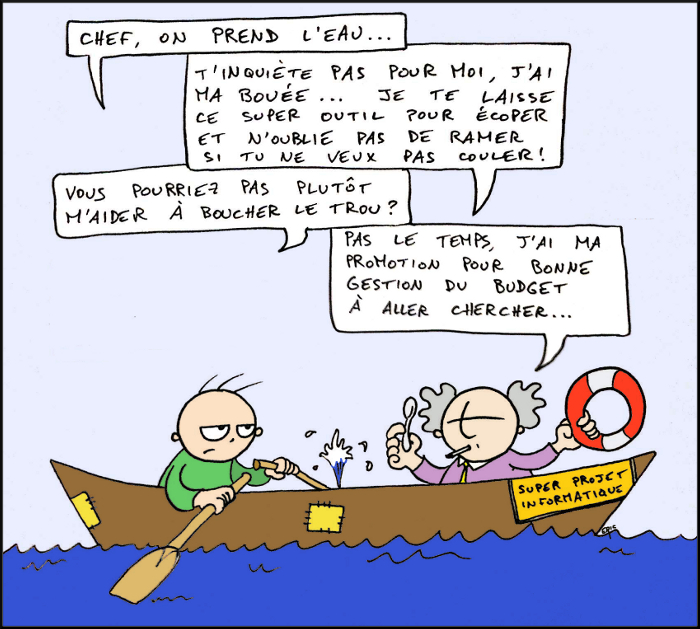 CHEF, ON PREND L'EAU...
T'INQUIÈTE PAS POUR MOI, J'AI
MA BOUÉE... JE TE LAISSE
CE SUPER OUTIL POUR ÉCOPER
ET N'OUBLIE PAS DE RAMER
SI TU NE VEUX PAS COULER!
VOUS POURRIEZ PAS PLUTÔT
M'AIDER À BOUCHER LE TROU?
PAS LE TEMPS, J'AI MA
PROMOTION POUR BONNE
GESTION DU BUDGET
À ALLER CHERCHER...
SUPER PROJET
INFORMATIQUE